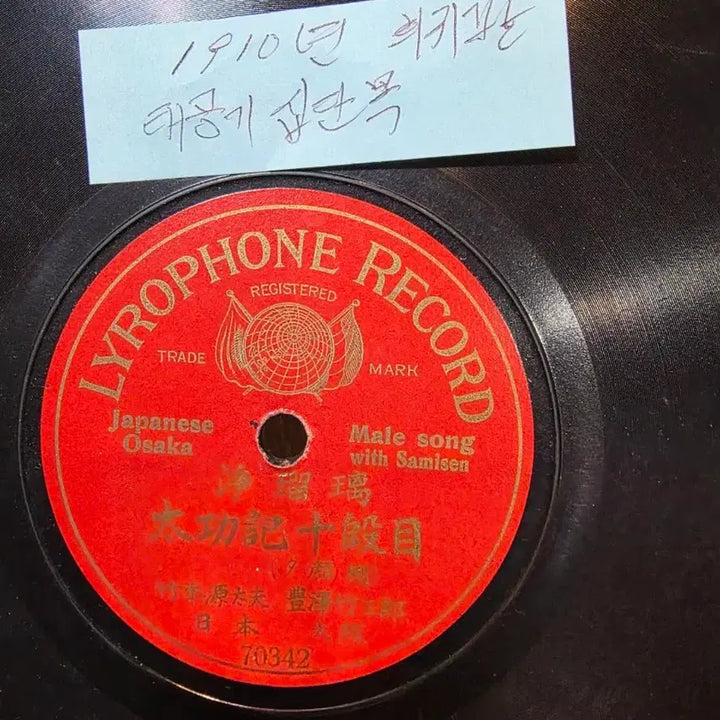 1910년
태공기 십단목
LYROPHONE RECORD
REGISTERED
TRADE MARK
Japanese Osaka
Male song with Samisen
浄瑠璃
太功記十段目
竹本源太夫 豊澤竹三郎
日本 大阪
70342